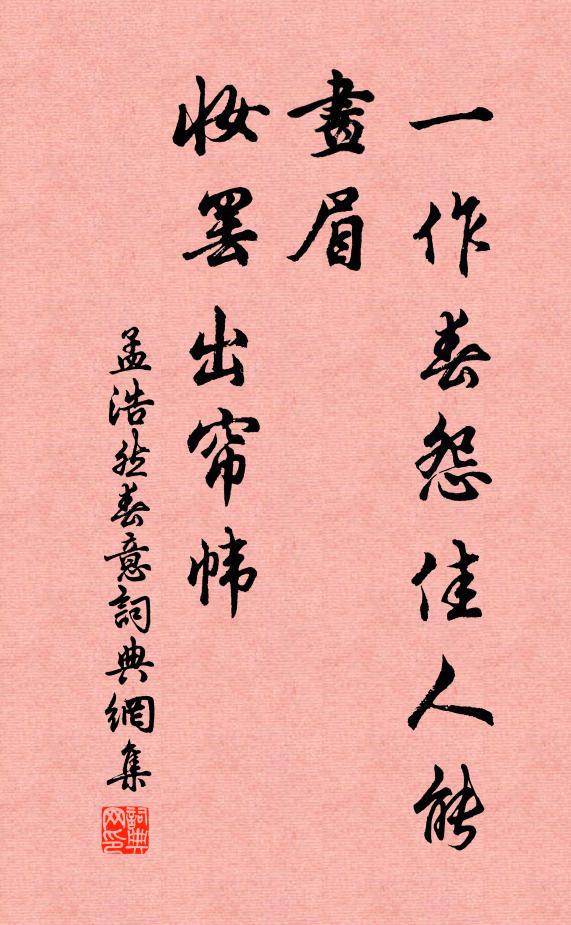 一作春怨佳人能
畫眉
妝罢出帘帏
孟浩然春意詞典網集
詞典网印